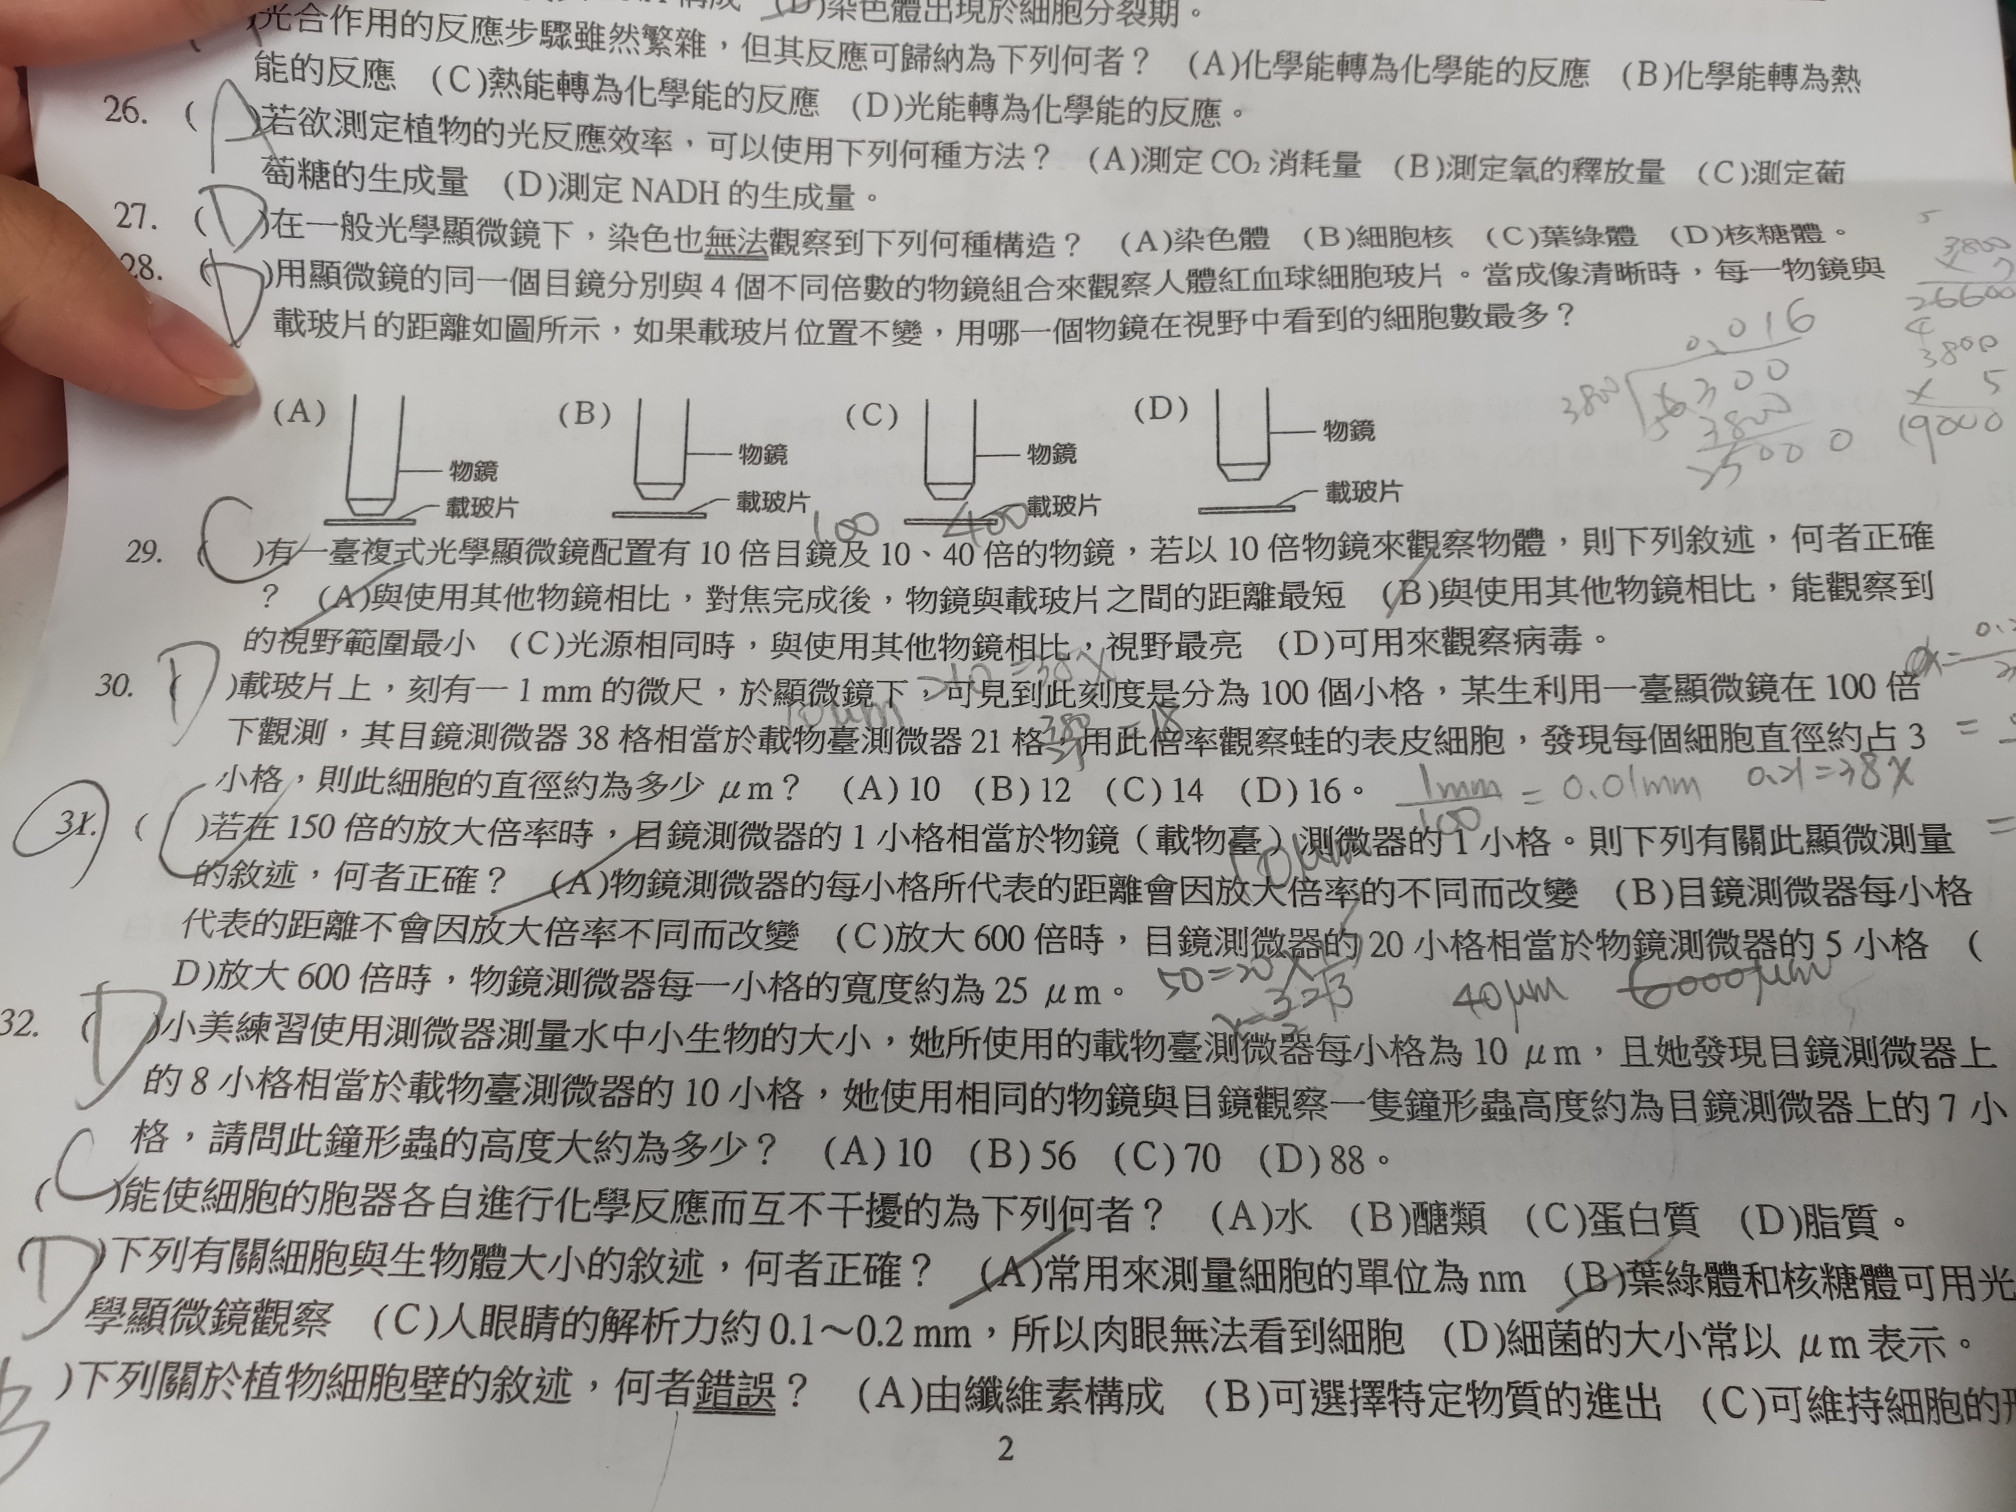 (D)染色體出現於細胞分裂期。
)光合作用的反應步驟雖然繁雜,但其反應可歸納為下列何者? (A)化學能轉為化學能的反應 (B)化學能轉為熱
能的反應 (C)熱能轉為化學能的反應 (D)光能轉為化學能的反應。
26. ( A )若欲測定植物的光反應效率,可以使用下列何種方法? (A)測定 CO₂ 消耗量 (B)測定氧的釋放量 (C)測定葡
萄糖的生成量 (D)測定 NADH 的生成量。
27. ( D )在一般光學顯微鏡下,染色也無法觀察到下列何種構造? (A)染色體 (B)細胞核 (C)葉綠體 (D)核糖體。
28. ( D )用顯微鏡的同一個目鏡分別與 4 個不同倍數的物鏡組合來觀察人體紅血球細胞玻片。當成像清晰時,每一物鏡與
載玻片的距離如圖所示,如果載玻片位置不變,用哪一個物鏡在視野中看到的細胞數最多?
0.016
(A) 物鏡 載玻片 (B) 物鏡 載玻片 (C) 物鏡 載玻片 (D) 物鏡 載玻片
3800
× 5
19000
100 400
29. ( C )有一臺複式光學顯微鏡配置有 10 倍目鏡及 10、40 倍的物鏡,若以 10 倍物鏡來觀察物體,則下列敘述,何者正確
? (A)與使用其他物鏡相比,對焦完成後,物鏡與載玻片之間的距離最短 (B)與使用其他物鏡相比,能觀察到
的視野範圍最小 (C)光源相同時,與使用其他物鏡相比,視野最亮 (D)可用來觀察病毒。
30. ( D )載玻片上,刻有一 1 mm 的微尺,於顯微鏡下,可見到此刻度是分為 100 個小格,某生利用一臺顯微鏡在 100 倍
10μm
下觀測,其目鏡測微器 38 格相當於載物臺測微器 21 格,用此倍率觀察蛙的表皮細胞,發現每個細胞直徑約占 3
小格,則此細胞的直徑約為多少 μm? (A)10 (B)12 (C)14 (D)16。
1mm/100 = 0.01mm 0.21=38X
31. ( C )若在 150 倍的放大倍率時,目鏡測微器的 1 小格相當於物鏡(載物臺)測微器的 1 小格。則下列有關此顯微測量
10μm
的敘述,何者正確? (A)物鏡測微器的每小格所代表的距離會因放大倍率的不同而改變 (B)目鏡測微器每小格
代表的距離不會因放大倍率不同而改變 (C)放大 600 倍時,目鏡測微器的 20 小格相當於物鏡測微器的 5 小格 (
D)放大 600 倍時,物鏡測微器每一小格的寬度約為 25 μm。
50=20X 40μm 6000μm
32. ( D )小美練習使用測微器測量水中小生物的大小,她所使用的載物臺測微器每小格為 10 μm,且她發現目鏡測微器上
的 8 小格相當於載物臺測微器的 10 小格,她使用相同的物鏡與目鏡觀察一隻鐘形蟲高度約為目鏡測微器上的 7 小
格,請問此鐘形蟲的高度大約為多少? (A)10 (B)56 (C)70 (D)88。
( C )能使細胞的胞器各自進行化學反應而互不干擾的為下列何者? (A)水 (B)醣類 (C)蛋白質 (D)脂質。
( D )下列有關細胞與生物體大小的敘述,何者正確? (A)常用來測量細胞的單位為 nm (B)葉綠體和核糖體可用光
學顯微鏡觀察 (C)人眼睛的解析力約 0.1~0.2 mm,所以肉眼無法看到細胞 (D)細菌的大小常以 μm 表示。
B )下列關於植物細胞壁的敘述,何者錯誤? (A)由纖維素構成 (B)可選擇特定物質的進出 (C)可維持細胞的
2